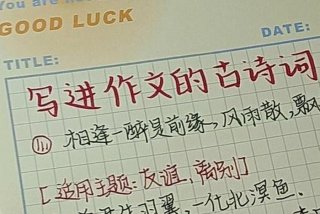 You are
GOOD LUCK
TITLE:
DATE:
写进作文的古诗词
① 相逢一醉是前缘，风雨散，飘
[适用主题:友谊，离别]
生羽翼，一化北溟鱼.